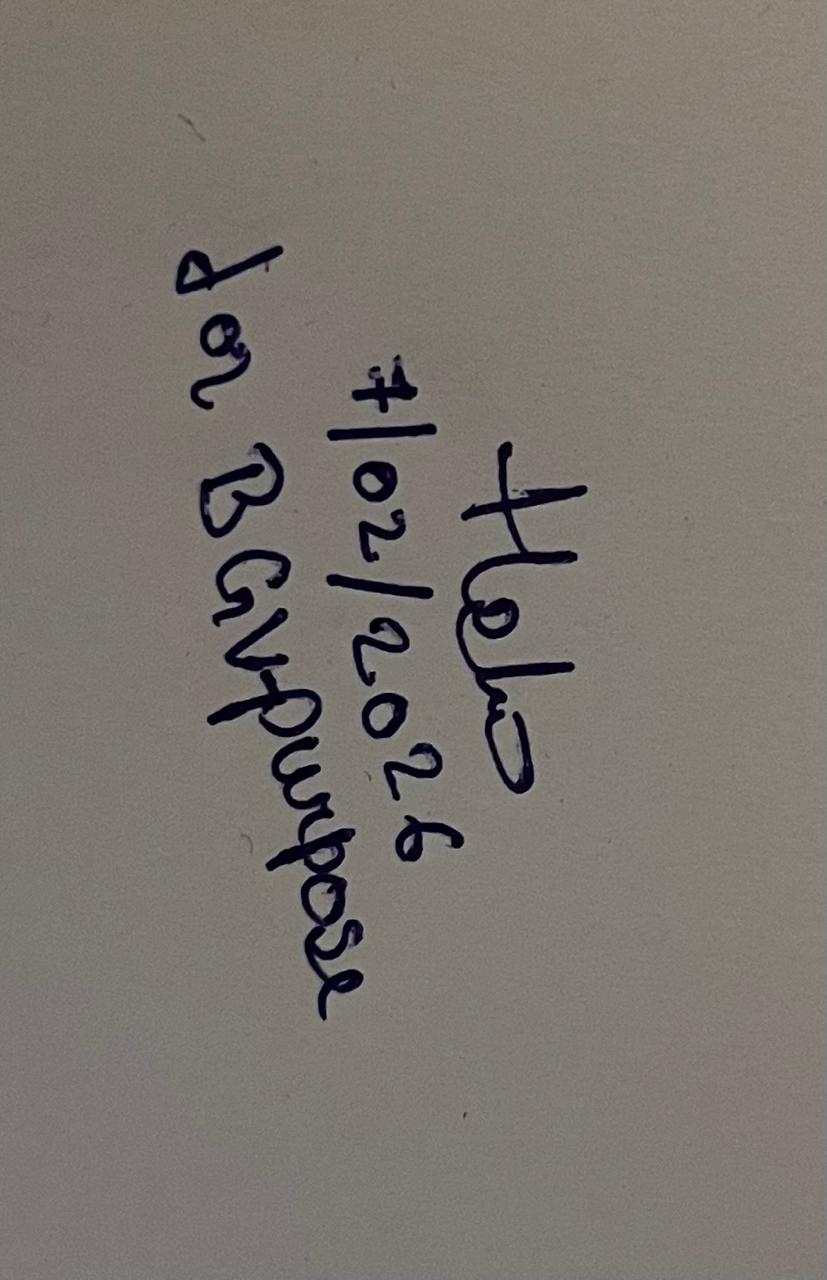 7/02/2026
for BGV purpose